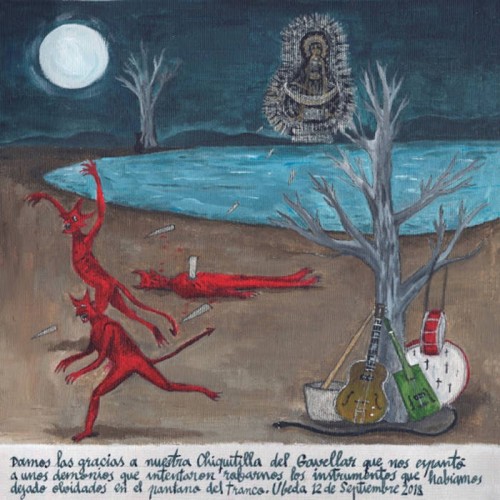 Damos las gracias a nuestra Chiquitilla del Gavellar que nos espantó
a unos demonios que intentaron robarnos los instrumentos que habíamos
dejado olvidados en el pantano del Tranco. Úbeda 12 de Septiembre 2018